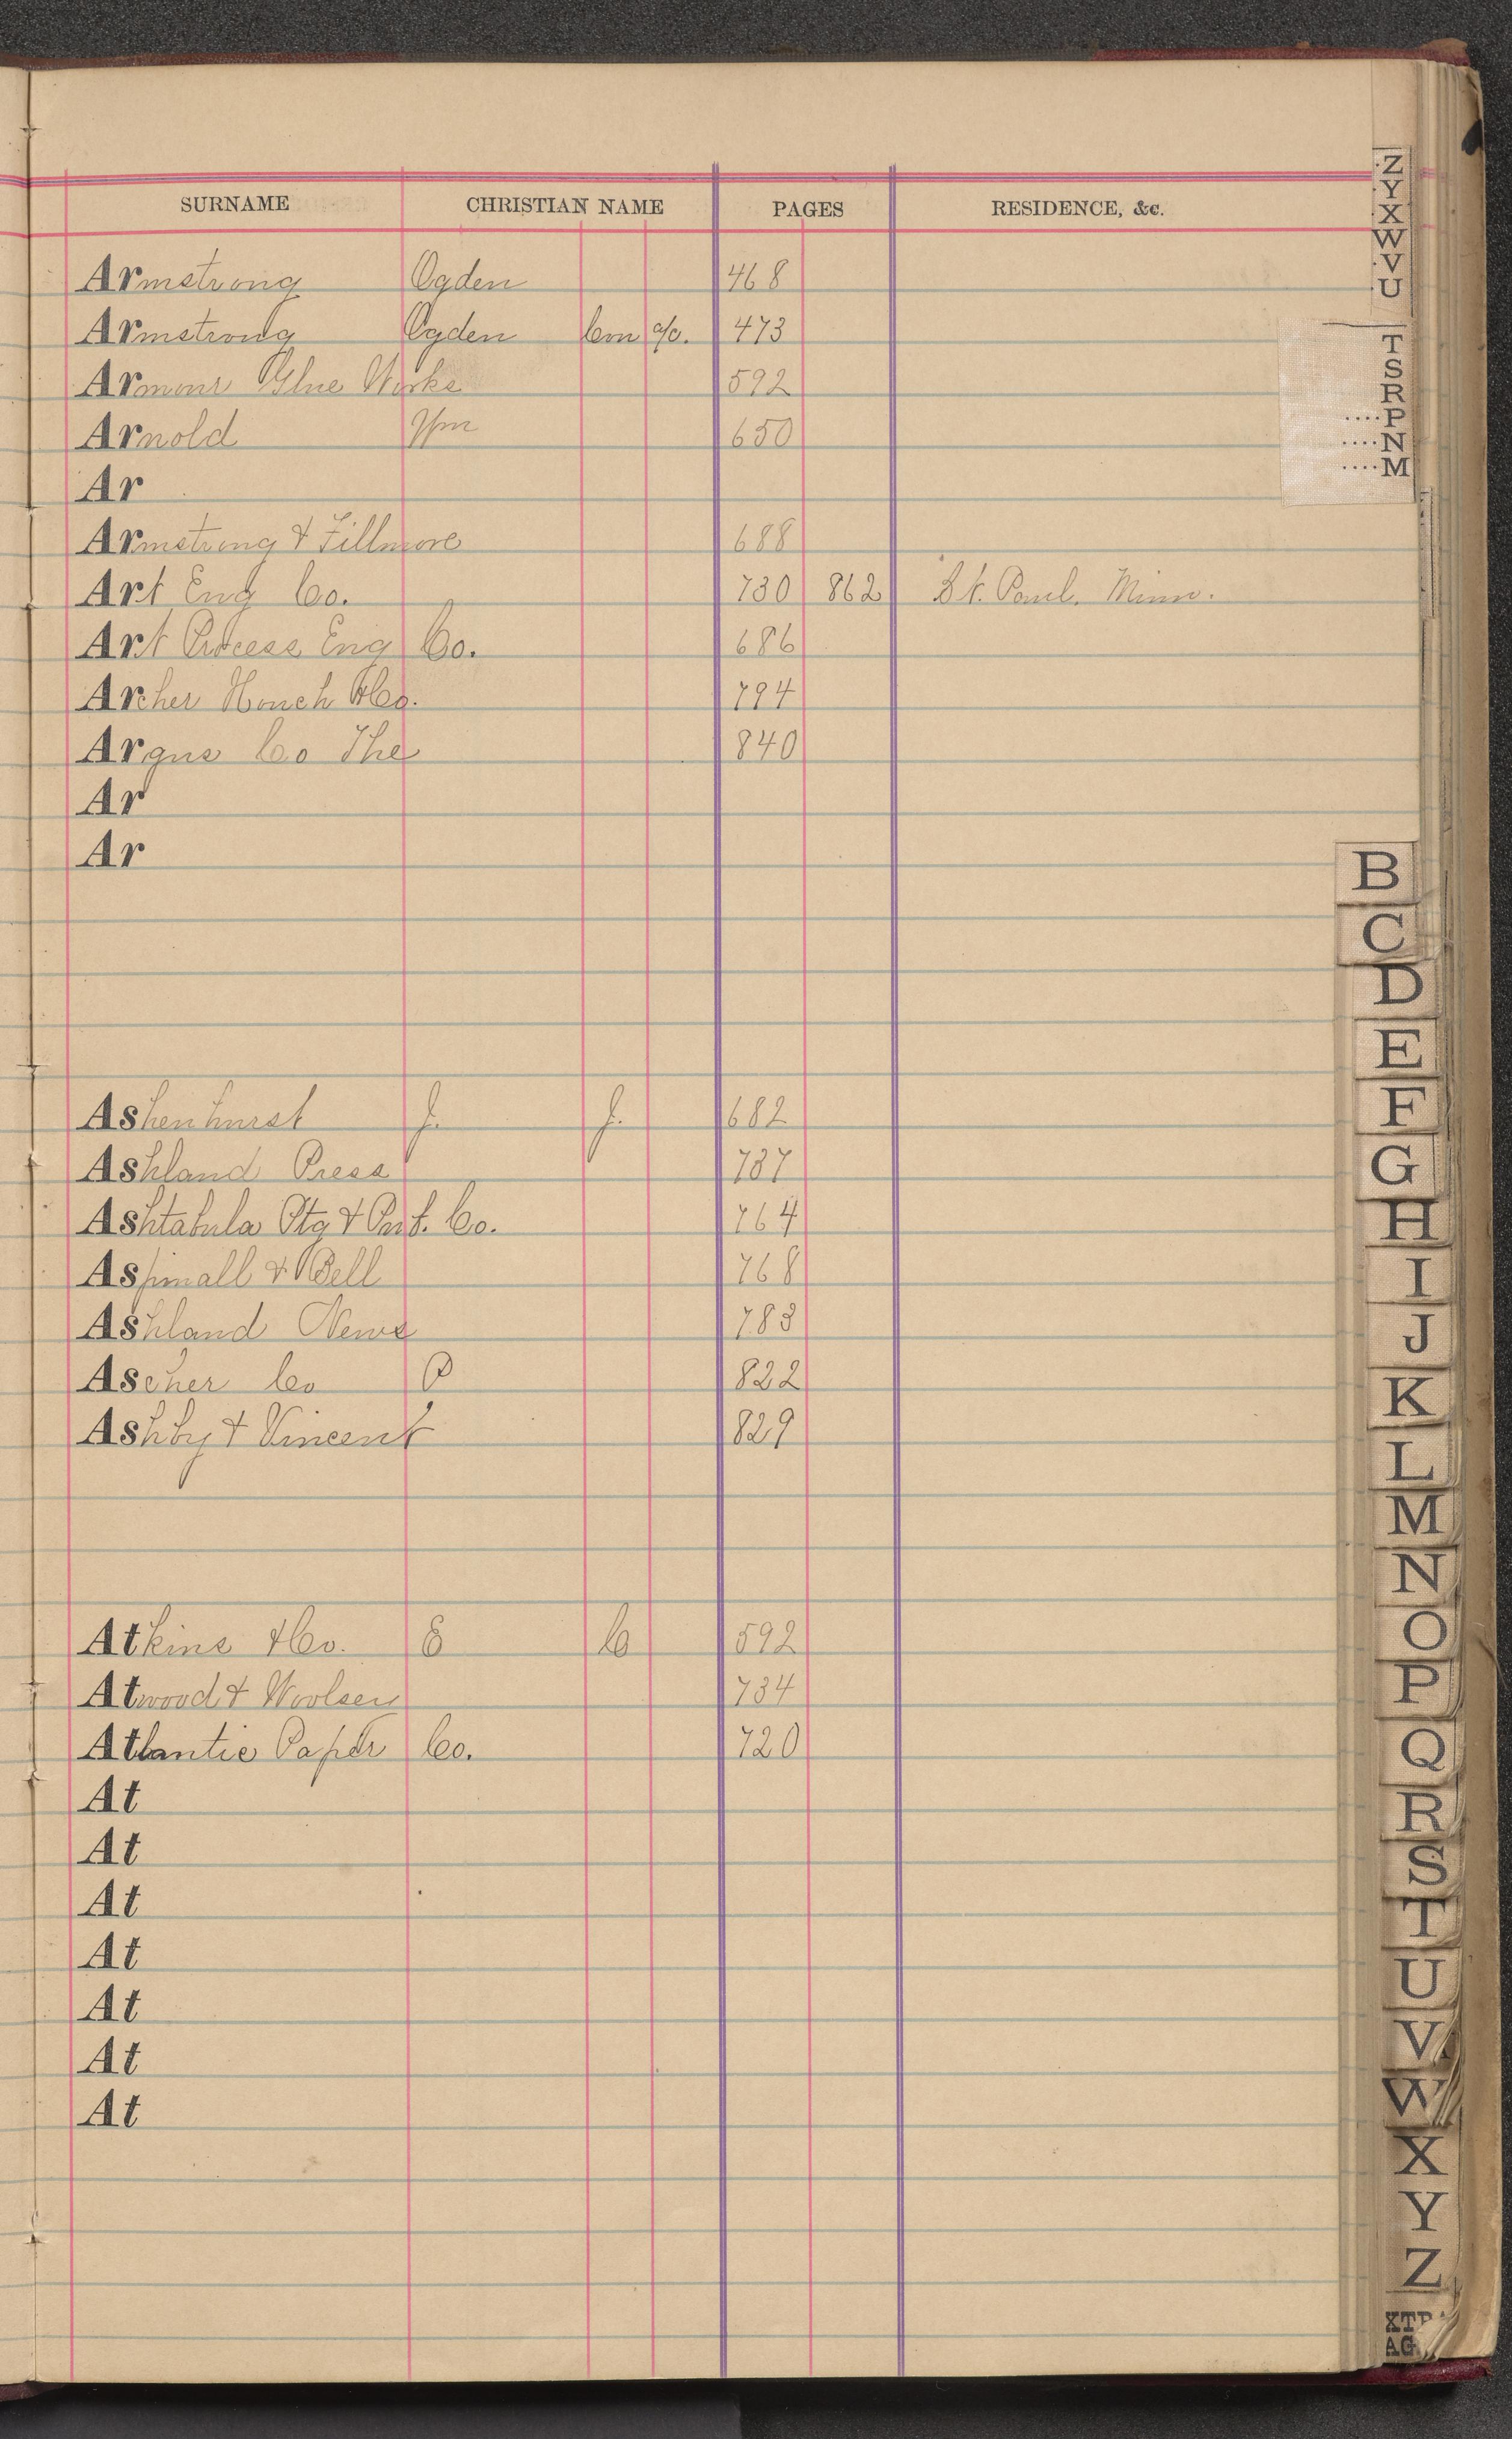 SURNAME CHRISTIAN NAME PAGES RESIDENCE, &c.
Armstrong Ogden 468
Armstrong Ogden Com a/c. 473
Armour Glue Works 592
Arnold Wm 650
Ar
Armstrong & Fillmore 688
Art Eng Co. 730 862 St. Paul. Minn.
Art Process Eng Co. 686
Archer &Co. 794
Argus Co The 840
Ar
Ar
Ashenhurst J. J. 682
Ashland Press 737
Ashtabula Ptg & Pub. Co. 764
Aspinall & Bell 768
Ashland News 783
Ascher Co P 822
Ashby & Vincent 829
Atkins &Co. E C 592
Atwood & Woolsen 734
Atlantic Paper Co. 720
At
At
At
At
At
At
At
Z
Y
X
W
V
U
T
S
R
....P
....N
....M
B
C
D
E
F
G
H
I
J
K
L
M
N
O
P
Q
R
S
T
U
V
W
X
Y
Z
XTP
AG